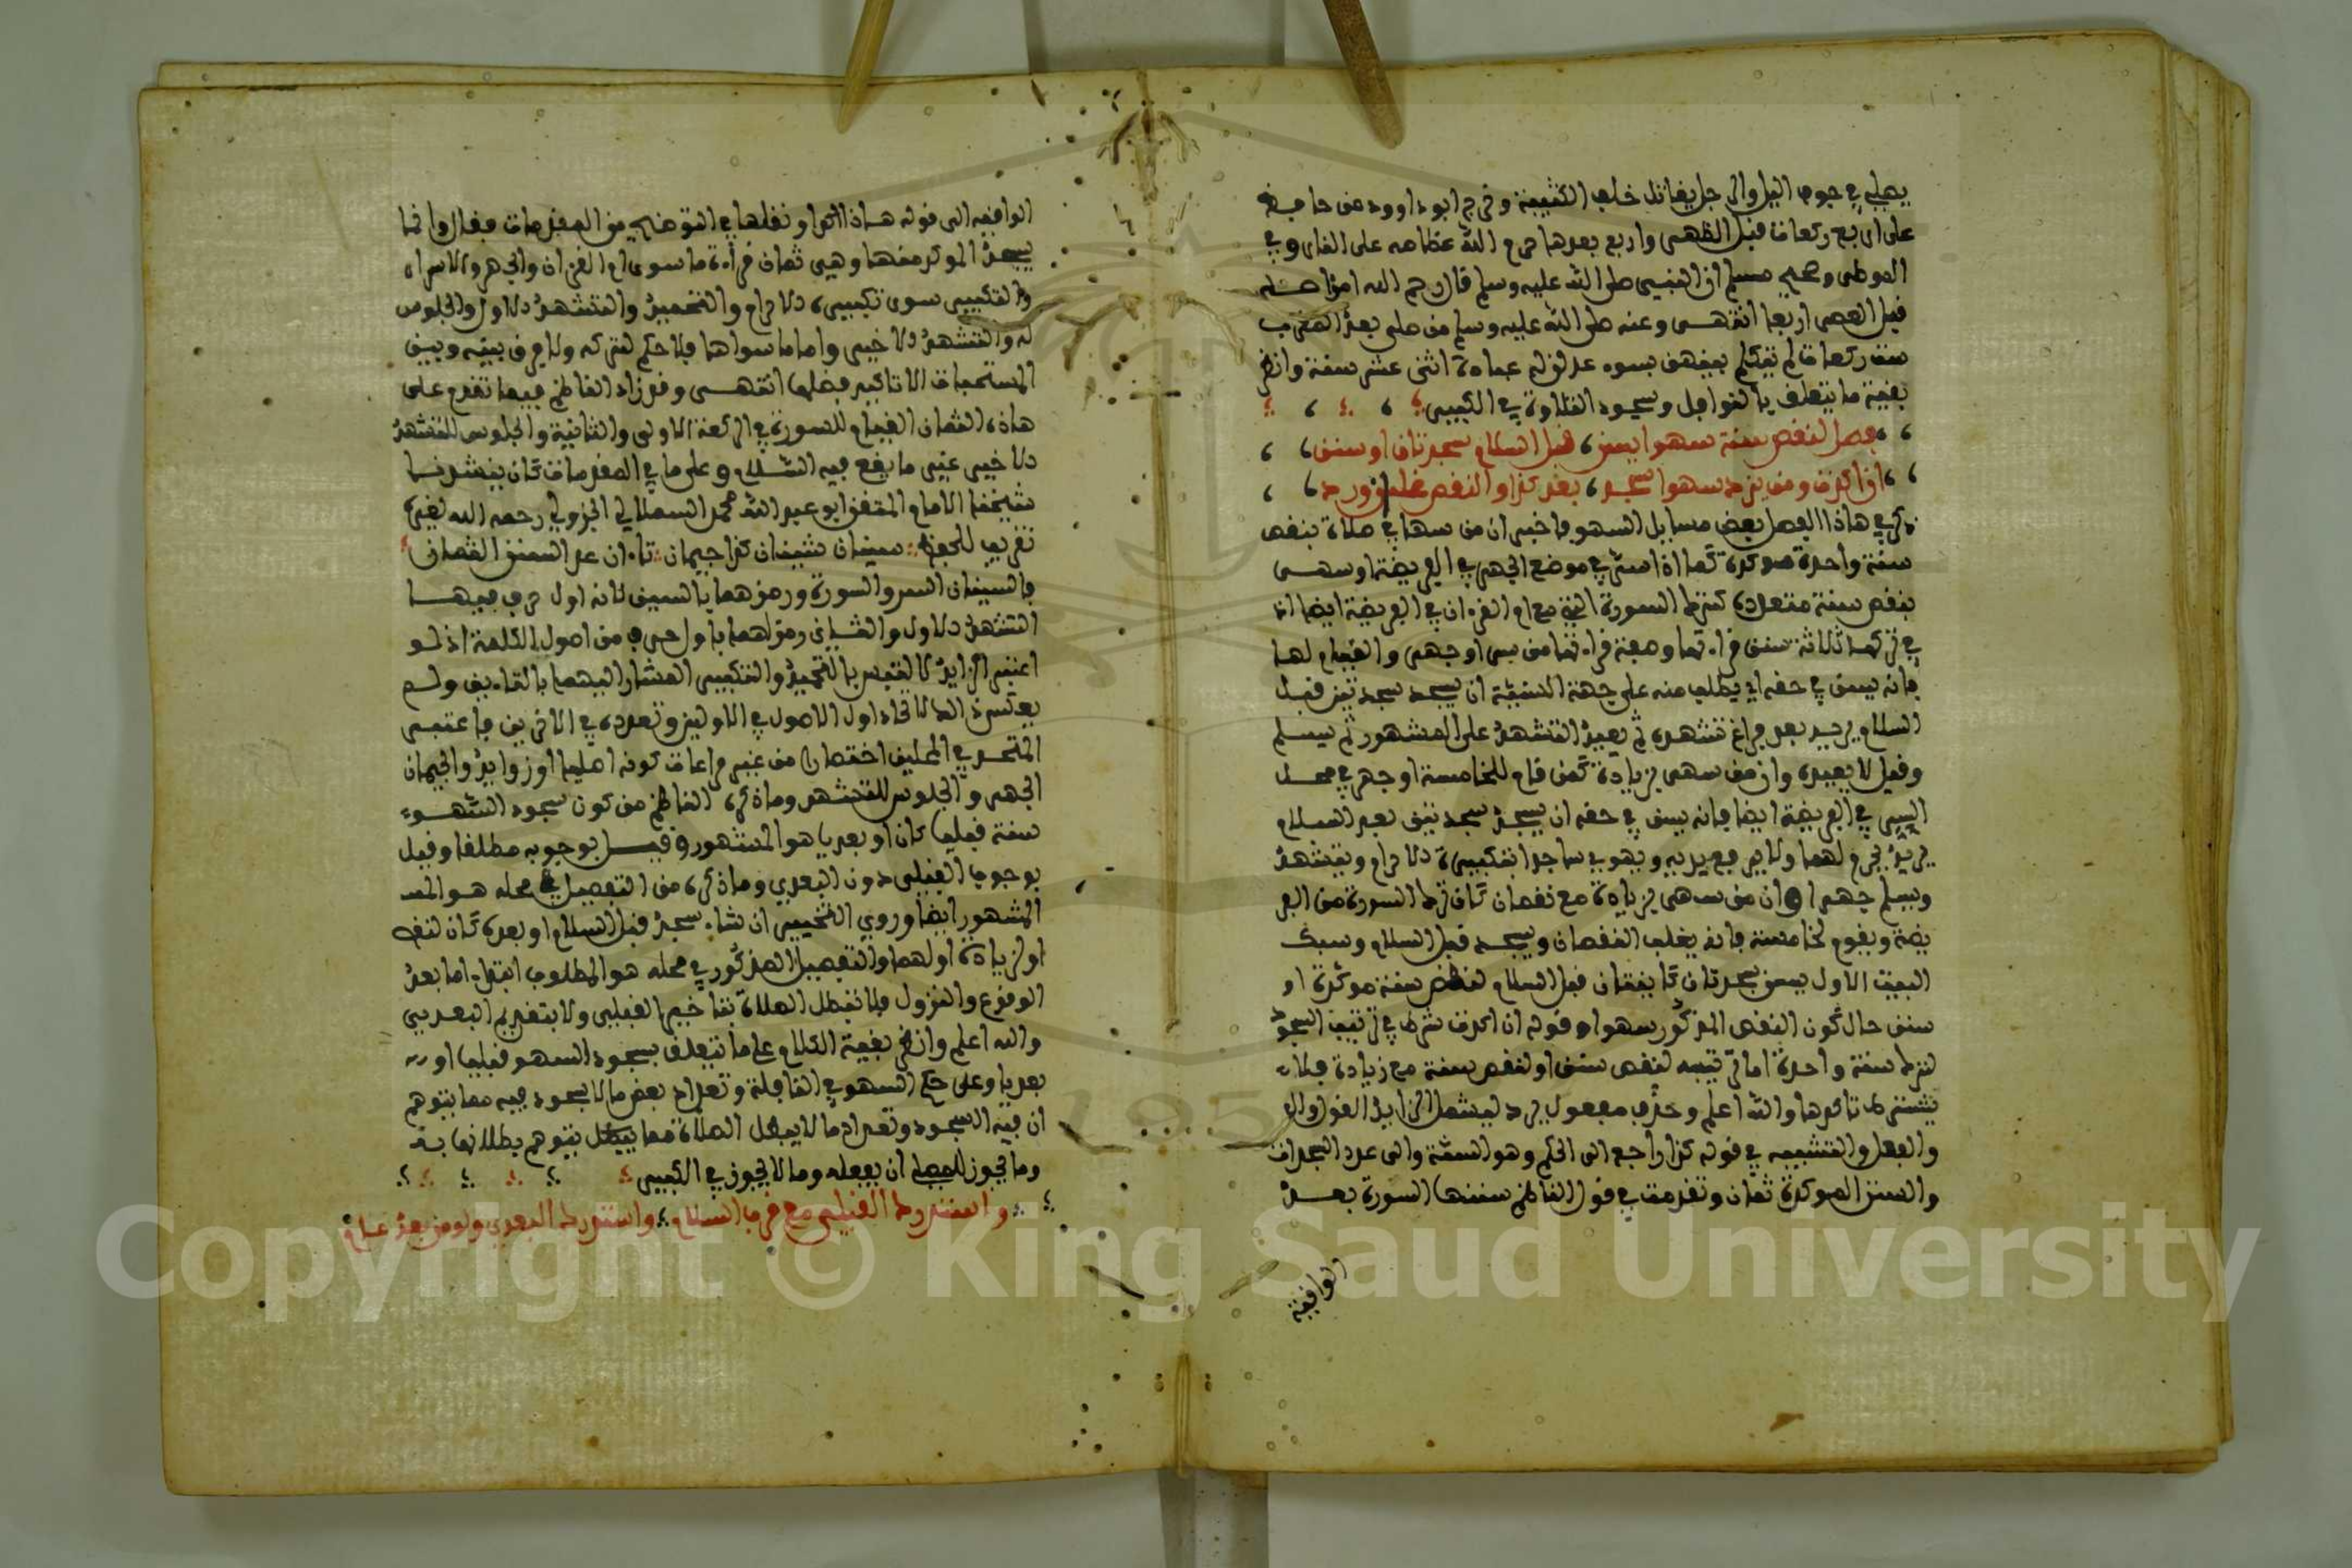 يصلي في جوف الليل والرجل يقاتل خلف الكتيبة وخرج ابو داوود من حافظ
على اربع ركعات قبل الظهر واربع بعدها حرم الله عظامه على النار وفي
الموطى وصحيح مسلم ان النبي صلى الله عليه وسلم قال رحم الله امرا صلى
قبل العصر اربعا انتهى وعنه صلى الله عليه وسلم من صلى بعد المغرب
ست ركعات لم يتكلم بينهن بسوء عدلن له عبادة اثنى عشر سنة وانظر
بقية ما يتعلق بالنوافل وسجود التلاوة في الكبير
فصل لنقص سنة سهوا يسن قبل السلام سجدتان او سنن
ان اكدت ومن يزد سهوا سجد بعد كذا والنقص غلب ان ورد
ذكر في هاذا الفصل بعض مسايل السهو فاخبر ان من سها في صلاة بنقص
سنة واحدة موكدة كما اذا اسر في موضع الجهر في الفريضة او سهى
بنقص سنة متعددة كترك السورة التي مع ام القران في الفريضة ايضا اذ
في تركها ثلاثة سنن قراءتها وصفة قراءتها من سر او جهر والقيام لها
فانه يسن في حقه اي يطلب منه على جهة السنية ان يسجد سجدتين قبل
السلام يريد بعد فراغ تشهده ثم يعيد التشهد على المشهور ثم يسلم
وقيل لا يعيده وان من سهى بزيادة كمن قام للخامسة او جهر في محل
السر في الفريضة ايضا فانه يسن في حقه ان يسجد سجدتين بعد السلام
يريد يحرم لهما ولا يرفع يديه ويهوي ساجدا بتكبيرة الاحرام ويتشهد
ويسلم جهرا وان من سهى بزيادة مع نقصان كان ترك السورة من الفر
يضة ويقوم لخامسة فانه يغلب النقصان ويسجد قبل السلام وسبك
البيت الاول يسن سجدتان كاينتان قبل السلام لنقص سنة موكدة او
سنن حال كون النقص المذكور سهوا وقوله ان اكدت شرط في ترتيب السجود
لترك سنة واحدة اما ترتيبه لنقص سنن او لنقص سنة مع زيادة فلا
يشترط تاكدها والله اعلم وحذف مفعول يزد ليشمل الزايد القول والفعل
والفعل والتشبيه في قوله كذا راجع الى الحكم وهو السنة والى عدد السجدات
والسنن الموكدة ثمان وتقدمت في قول الناظم سننها السورة بعد
الواقية
الواقية الى قوله هاذا اكدا ونقلها في التوضيح من المقدمات فقال وانما
يسجد الموكد منها وهي ثمان قراءة ما سوى ام القران والجهر والاسرار
والتكبير سوى تكبيرة الاحرام والتحميد والتشهد الاول والجلوس
له والتشهد الاخير واما ما سواها فلا حكم لتركه ولا فرق بينه وبين
المستحبات الا تاكيد فضلها انتهى وقد زاد الناظم فيما تقدم على
هاذه الثمان القيام للسورة في الركعة الاولى والثانية والجلوس للتشهد
الاخير غير ما يقع فيه السلام وعلى ما في المقدمات كان ينشدنا
شيخنا الامام المتفنن ابو عبد الله محمد السملالي الجزولي رحمه الله لغيره
تقريبا للحفظ سينان شينان كذا جيمان تاءان عد السنن الثمان
فالسينان السر والسورة ورمز هما بالسين لانه اول حرف فيهما
التشهد الاول والثاني ورمز لهما باول حرف من اصول الكلمة اذ لو
اعتبر الزايد لالتبس بالتحميد والتكبير المشار اليهما بالتاءين ولم
يعكس ذالك لاتحاد اول الاصول في الاولين وتعدده في الاخرين فاعتبر
المتحد في المحلين اختصارا من غير مراعات كونه اصليا او زوايد والجيمان
الجهر والجلوس للتشهد وما ذكره الناظم من كون سجود السهو
سنة قبليا كان او بعديا هو المشهور وقيل بوجوبه مطلقا وقيل
بوجوب القبلي دون البعدي وما ذكره من التفصيل في محله هو المد
المشهور ايضا وروي التخيير ان شاء سجد قبل السلام او بعده كان لنقص
او لزيادة او لهما والتفصيل المذكور في محله هو المطلوب ابتداء اما بعد
الوقوع والنزول فلا تبطل الصلاة بتاخير القبلي ولا بتقديم البعدي
والله اعلم وانظر بقية الكلام على ما يتعلق بسجود السهو قبليا او
بعديا وعلى حكم السهو في النافلة وتعداد بعض ما لا سجود فيه مما يتوهم
ان فيه السجود وتعداد ما لا يبطل الصلاة مما يتوهم بطلانها به
وما يجوز للمصلي ان يفعله وما لا يجوز في الكبير
واستدرك القبلي مع قرب السلام واستدرك البعدي ولو من بعد عام